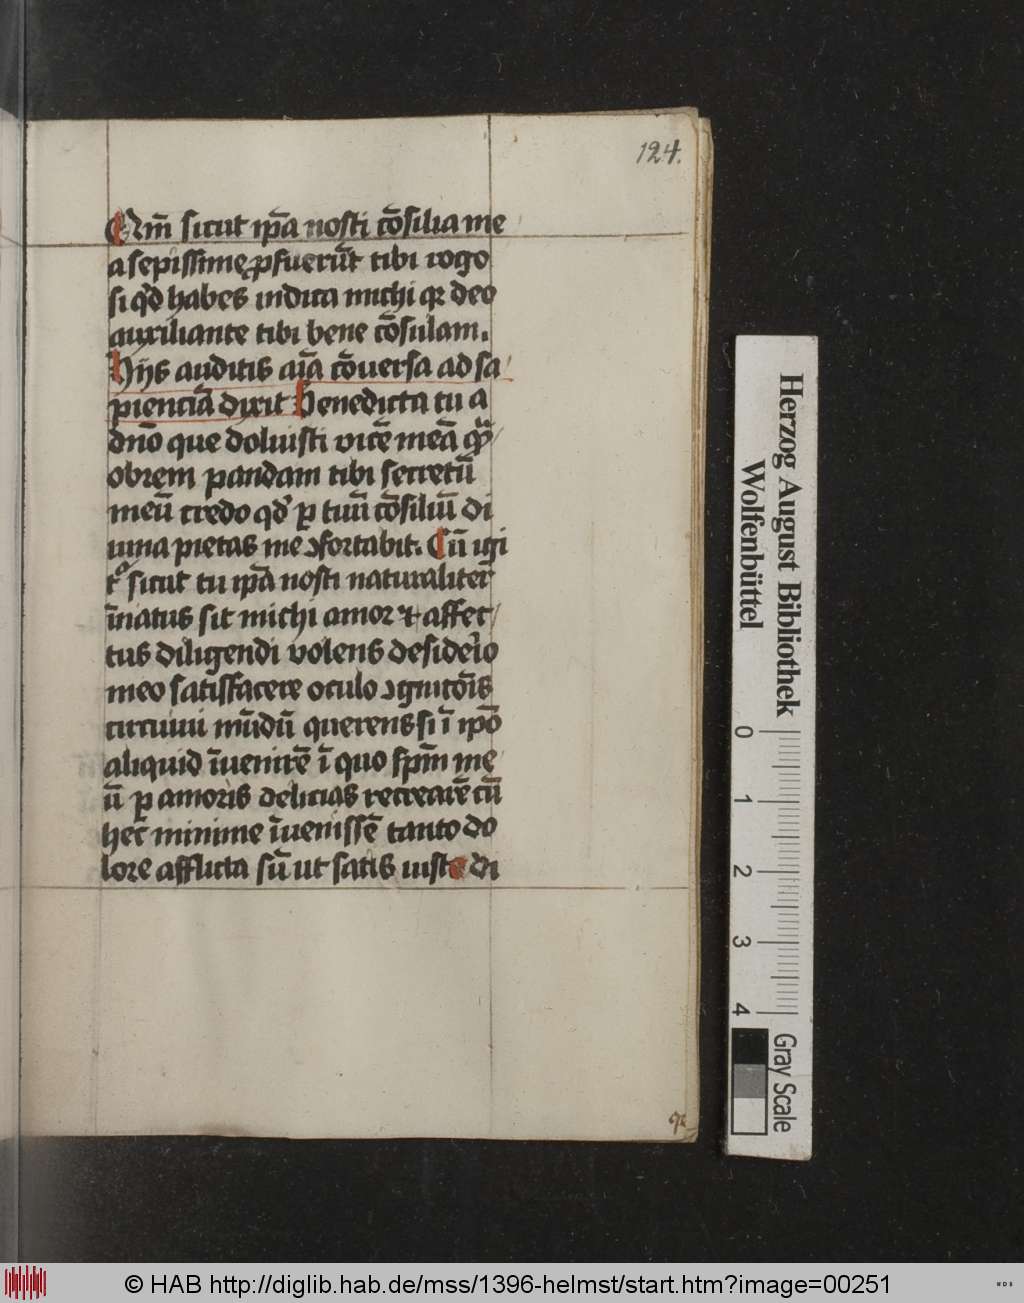 124.
Cūm sicut ip̄a nosti cōsilia me
a sepissime ꝓfuerūt tibi rogo
si qd̄ habes indica michi qꝛ deo
auxiliante tibi bene cōsulam.
Hijs auditis aīa cōuersa ad sa
pienciā dixit Benedicta tu a
dn̄o que doluisti vicē meā
obrem pandam tibi secretū
meū credo qd̓ ꝑ tuū cōsiliū di
uina pietas me ꝯfortabit. Cū igi
t᷑ sicut tu ip̄a nosti naturaliter
īnatus sit michi amor ⁊ affec
tus diligendi volens desiderio
meo satisfacere oculo ꝯgnicōis
circuiui mūdū querens si ī ipō
aliquid īuenirē ī quo sp̄m me
ū ꝑ amoris delicias recrearē cū
hec minime īuenissē tanto do
lore afflicta sū ut satis iuste di
Herzog August Bibliothek
Wolfenbüttel
0 1 2 3 4
Gray Scale
© HAB http://diglib.hab.de/mss/1396-helmst/start.htm?image=00251